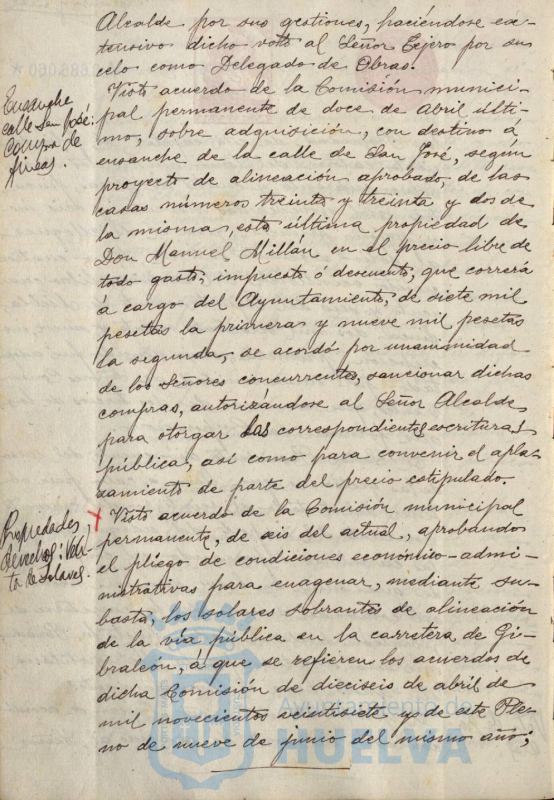 Alcalde por sus gestiones, haciéndose ex-
tensivo dicho voto al Señor Tejero por su
celo como Delegado de Obras.
Ensanche
calle San José:
Compra de
fincas.
Visto acuerdo de la Comisión munici-
pal permanente de doce de Abril últi-
mo, sobre adquisición, con destino á
ensanche de la calle de San José, según
proyecto de alineación aprobado, de las
casas números treinta y treinta y dos de
la misma, esta última propiedad de
Don Manuel Millán en el precio libre de
todo gasto, impuesto ó descuento, que correrá
á cargo del Ayuntamiento, de siete mil
pesetas la primera y nueve mil pesetas
la segunda, se acordó por unanimidad
de los Señores concurrentes, sancionar dichas
compras, autorizándose al Señor Alcalde
para otorgar las correspondientes escrituras
pública, así como para convenir el apla-
zamiento de parte del precio estipulado.
Propiedades
derechos: Ven-
ta de Solares.
Visto acuerdo de la Comisión municipal
permanente, de seis del actual, aprobando
el pliego de condiciones económico-admi-
nistrativas para enagenar, mediante su-
basta, los solares sobrantes de alineación
de la vía pública en la carretera de Gi-
braleón, á que se refieren los acuerdos de
dicha Comisión de dieciseis de abril de
mil novecientos veintisiete y de este Ple-
no de nueve de junio del mismo año;
Ayuntamiento de
HUELVA